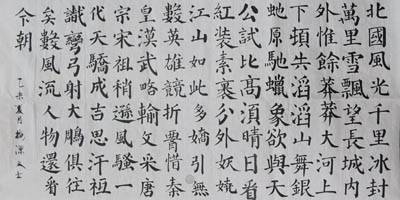 北國風光千里冰封
萬里雪飄望長城内
外惟餘莽莽大河上
下頓失滔滔山舞銀
虵原馳蠟象欲與天
公試比高須晴日看
紅裝素裹分外妖嬈
江山如此多嬌引無
數英雄競折腰惜秦
皇漢武略輸文采唐
宗宋祖稍遜風騷一
代天驕成吉思汗祗
識彎弓射大鵰俱往
矣數風流人物還看
今朝
乙未夏月